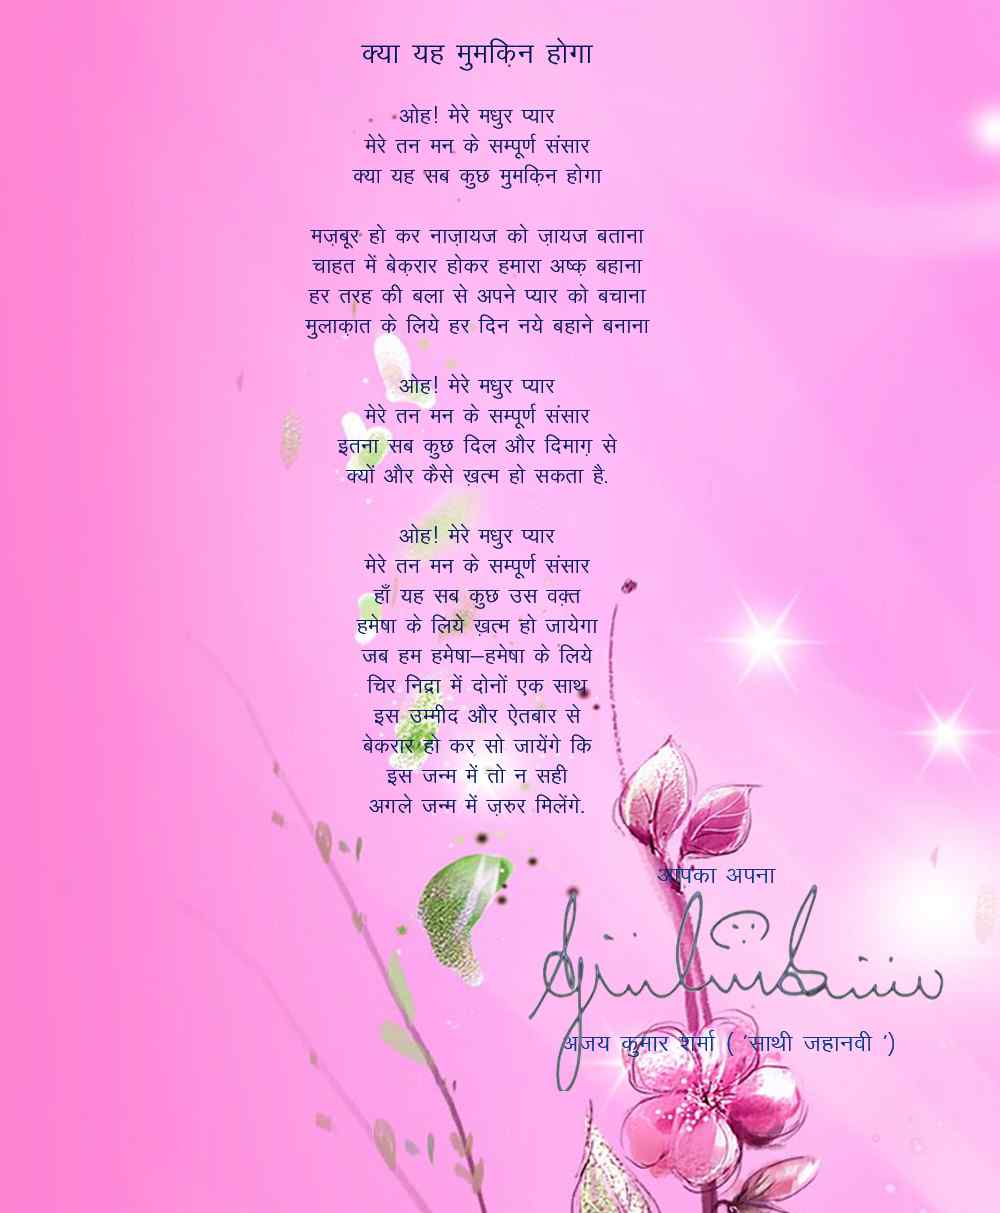 क्या यह मुमक़िन होगा
ओह! मेरे मधुर प्यार
मेरे तन मन के सम्पूर्ण संसार
क्या यह सब कुछ मुमक़िन होगा
मज़बूर हो कर नाज़ायज को ज़ायज बताना
चाहत में बेक़रार होकर हमारा अष्क़ बहाना
हर तरह की बला से अपने प्यार को बचाना
मुलाक़ात के लिये हर दिन नये बहाने बनाना
ओह! मेरे मधुर प्यार
मेरे तन मन के सम्पूर्ण संसार
इतना सब कुछ दिल और दिमाग़ से
क्यों और कैसे ख़त्म हो सकता है.
ओह! मेरे मधुर प्यार
मेरे तन मन के सम्पूर्ण संसार
हाँ यह सब कुछ उस वक़्त
हमेषा के लिये ख़त्म हो जायेगा
जब हम हमेषा–हमेषा के लिये
चिर निद्रा में दोनों एक साथ
इस उम्मीद और ऐतबार से
बेकरार हो कर सो जायेंगे कि
इस जन्म में तो न सही
अगले जन्म में ज़रुर मिलेंगे.
आपका अपना
अजय कुमार शर्मा ( 'साथी जहानवी ')